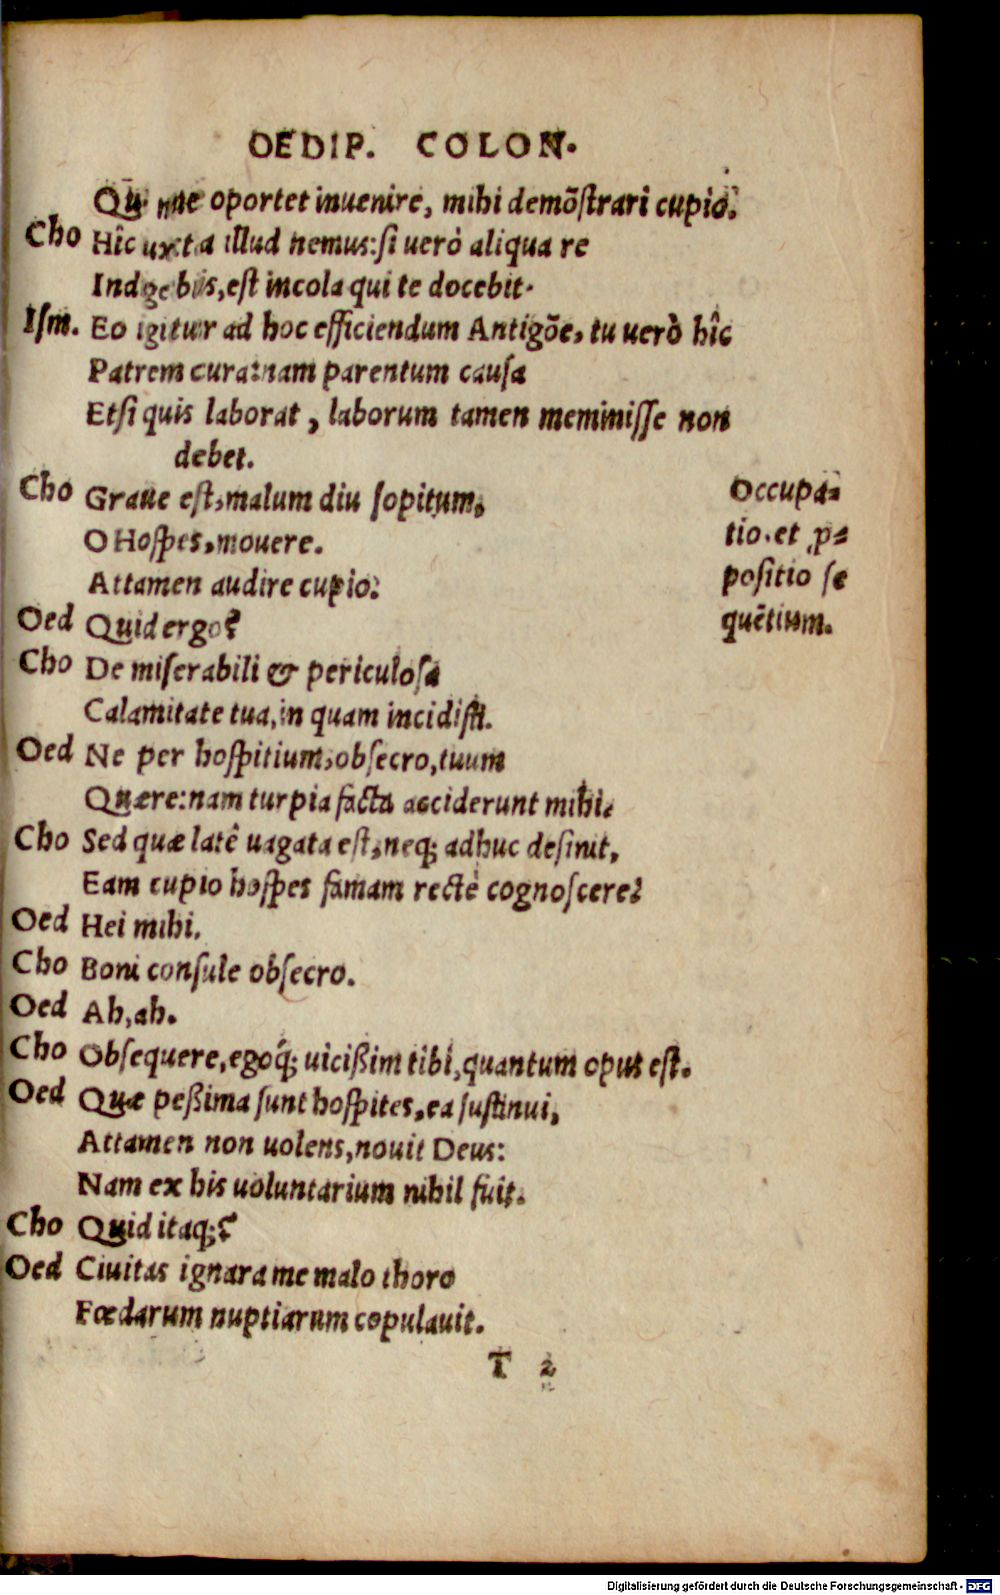 OEDIP. COLON.
oportet inuenire, mihi demõstrari cupio.
Cho Hîc iuxta illud nemus: si uerò aliqua re
Indigebis, est incola qui te docebit.
Ism. Eo igitur ad hoc efficiendum Antigõe, tu uerò hîc
Patrem cura: nam parentum causa
Etsi quis laborat, laborum tamen meminisse non
debet.
Cho Graue est, malum diu sopitum,
O Hospes, mouere.
Attamen audire cupio.
Occupa=
tio. et p=
positio se
quētium.
Oed Quid ergo?
Cho De miserabili & periculosa
Calamitate tua, in quam incidisti.
Oed Ne per hospitium, obsecro, tuum
Quære: nam turpia facta acciderunt mihi.
Cho Sed quæ latê uagata est, neq; adhuc desinit,
Eam cupio hospes famam rectè cognoscere.
Oed Hei mihi.
Cho Boni consule obsecro.
Oed Ah, ah.
Cho Obsequere, egoq́; uicißim tibi, quantum opus est.
Oed Quæ peßima sunt hospites, ea sustinui,
Attamen non uolens, nouit Deus:
Nam ex his uoluntarium nihil fuit.
Cho Quid itaq;?
Oed Ciuitas ignara me malo thoro
Fœdarum nuptiarum copulauit.
T 2
Digitalisierung gefördert durch die Deutsche Forschungsgemeinschaft - DFG